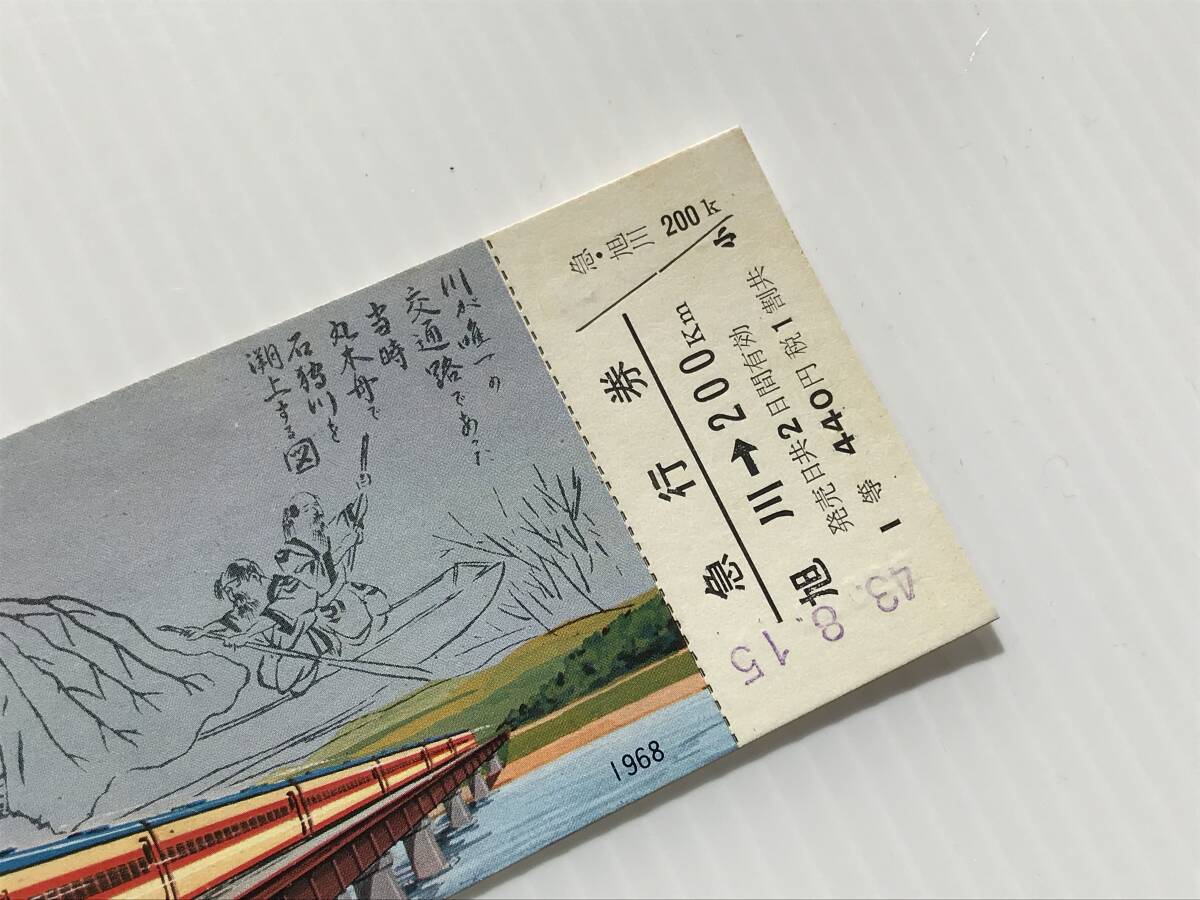 川が唯一の
交通路であった
当時
丸木舟で
石狩川を
溯上する図
1968
急・旭川 200k
小
急行券
旭川→200Km
発売日共2日間有効
1等 440円 税1割共
43.8.15